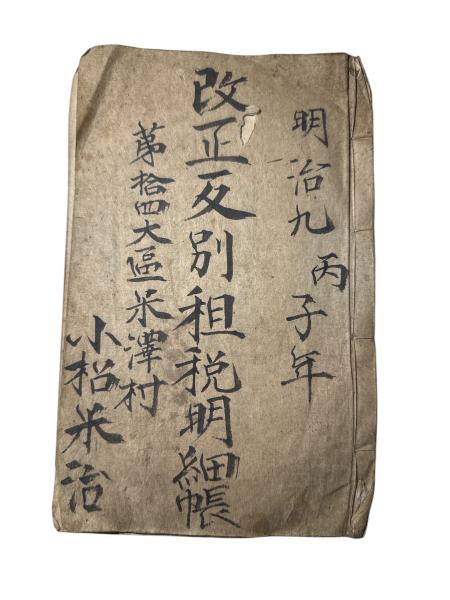 明治九丙子年
改正反別租税明細帳
第拾四大區米澤村
小松米治